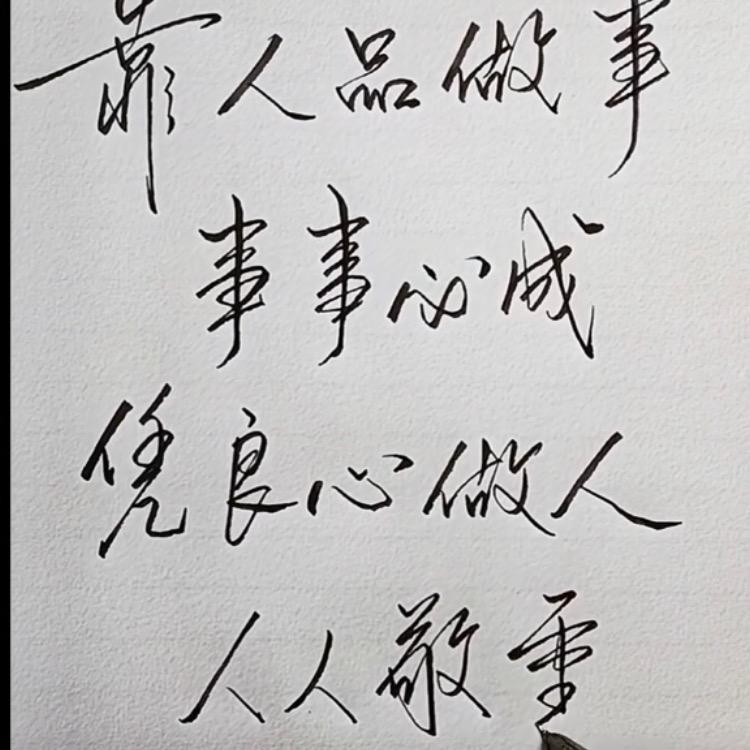 靠人品做事
事事必成
凭良心做人
人人敬重